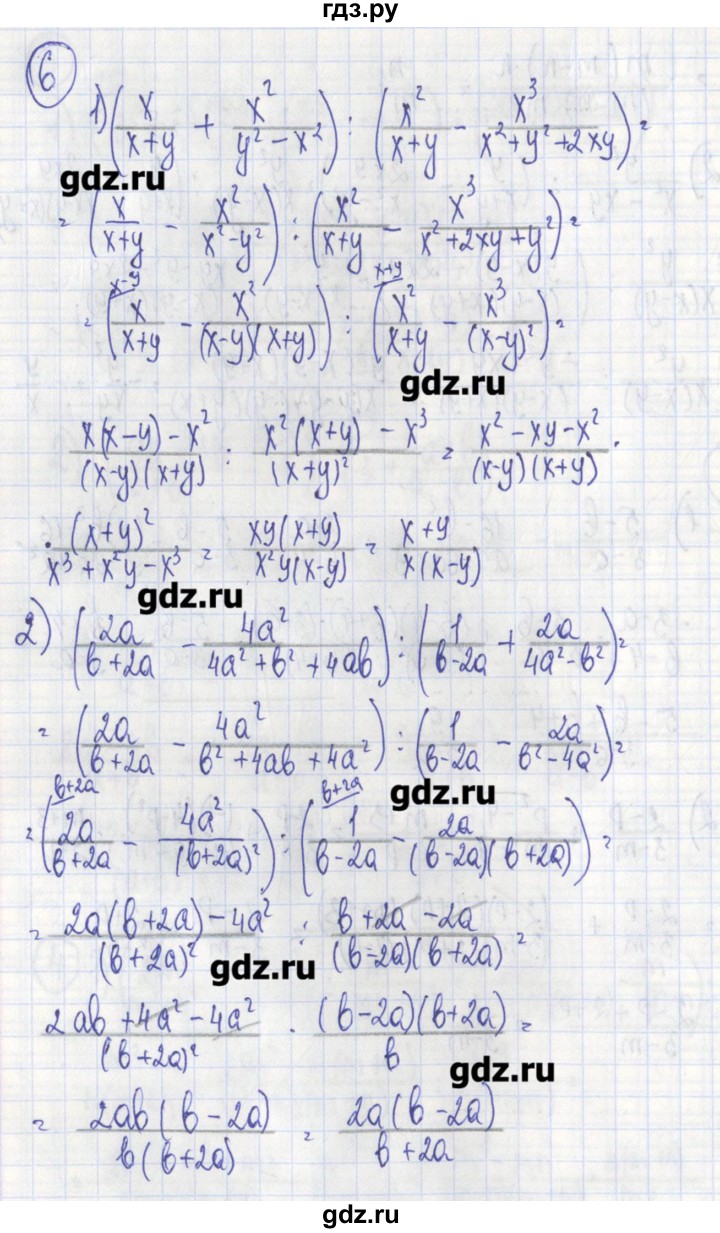 гдз.ру
6
1) (x/(x+y) + x²/(y² − x²)) : (x²/(x+y) − x³/(x²+y²+2xy)) =
gdz.ru
= (x/(x+y) − x²/(x²−y²)) : (x²/(x+y) − x³/(x²+2xy+y²)) =
x−y x+y
= (x/(x+y) − x²/((x−y)(x+y))) : (x²/(x+y) − x³/(x−y)²) =
gdz.ru
(x(x−y) − x²)/((x−y)(x+y)) : (x²(x+y) − x³)/(x+y)² = (x² − xy − x²)/((x−y)(x+y)) ·
· (x+y)²/(x³ + x²y − x³) = xy(x+y)/(x²y(x−y)) = (x+y)/(x(x−y))
gdz.ru
2) (2a/(b+2a) − 4a²/(4a²+b²+4ab)) : (1/(b−2a) + 2a/(4a²−b²)) =
= (2a/(b+2a) − 4a²/(b²+4ab+4a²)) : (1/(b−2a) − 2a/(b²−4a²)) =
gdz.ru
b+2a b+2a
= (2a/(b+2a) − 4a²/(b+2a)²) : (1/(b−2a) − 2a/((b−2a)(b+2a))) =
= (2a(b+2a) − 4a²)/(b+2a)² : (b+2a−2a)/((b−2a)(b+2a)) =
gdz.ru
(2ab + 4a² − 4a²)/(b+2a)² · (b−2a)(b+2a)/b =
gdz.ru
= 2ab(b−2a)/(b(b+2a)) = 2a(b−2a)/(b+2a)
gdz.ru